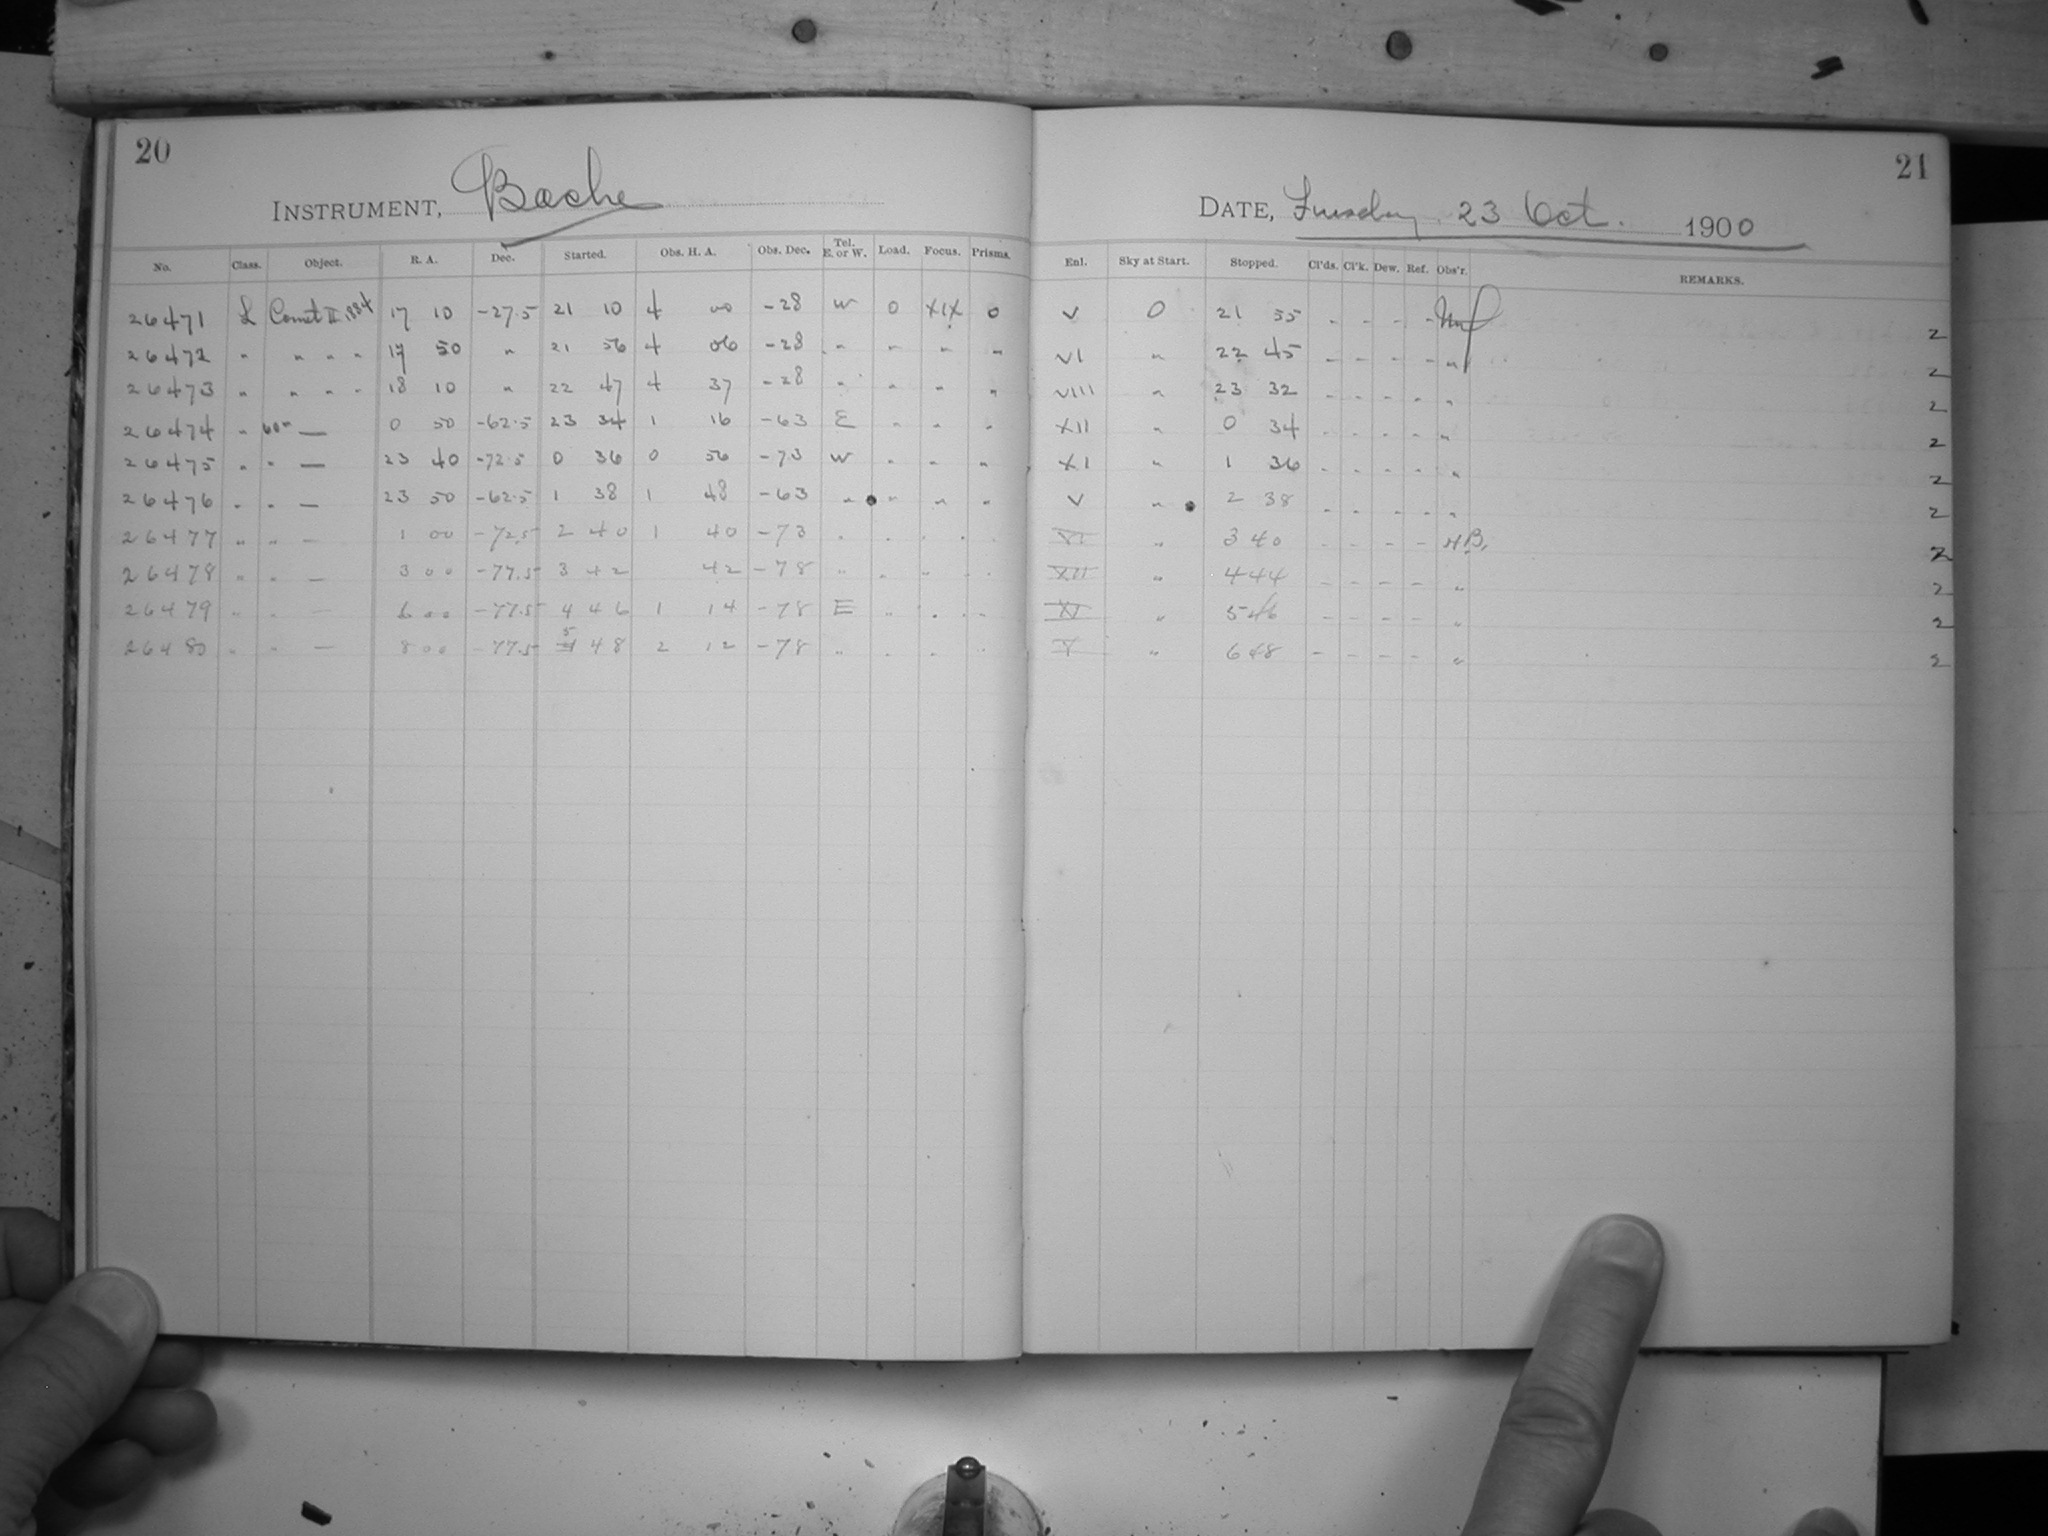 20
INSTRUMENT, Bache
No. Class. Object. R. A. Dec. Started. Obs. H. A. Obs. Dec. Tel. E. or W. Load. Focus. Prisms.
26471 L Comet II 1884 17 10 -27.5 21 10 4 00 -28 W 0 XIX 0
26472 " " " " 17 50 " 21 56 4 06 -28 " " " "
26473 " " " " 18 10 " 22 47 4 37 -28 " " " "
26474 " 60m — 0 50 -62.5 23 34 1 16 -63 E " " "
26475 " " — 23 40 -72.5 0 36 0 56 -73 W " " "
26476 " " — 23 50 -62.5 1 38 1 48 -63 " " " "
26477 " " — 1 00 -72.5 2 40 1 40 -73 " " " "
26478 " " — 3 00 -77.5 3 42 42 -78 " " " "
26479 " " — 6 00 -77.5 4 46 1 14 -78 E " " "
26480 " " — 8 00 -77.5 5 48 2 12 -78 " " " "
21
DATE, Tuesday 23 Oct. 1900
Enl. Sky at Start. Stopped. Cl'ds. Cl'k. Dew. Ref. Obs'r. REMARKS.
V 0 21 55 - - - - 2
VI " 22 45 - - - - " 2
VIII " 23 32 - - - - " 2
XII " 0 34 - - - - " 2
XI " 1 36 - - - - " 2
V " 2 38 - - - - " 2
VI " 3 40 - - - - HB. 2
XII " 4 44 - - - - " 2
XI " 5 46 - - - - " 2
V " 6 48 - - - - " 2